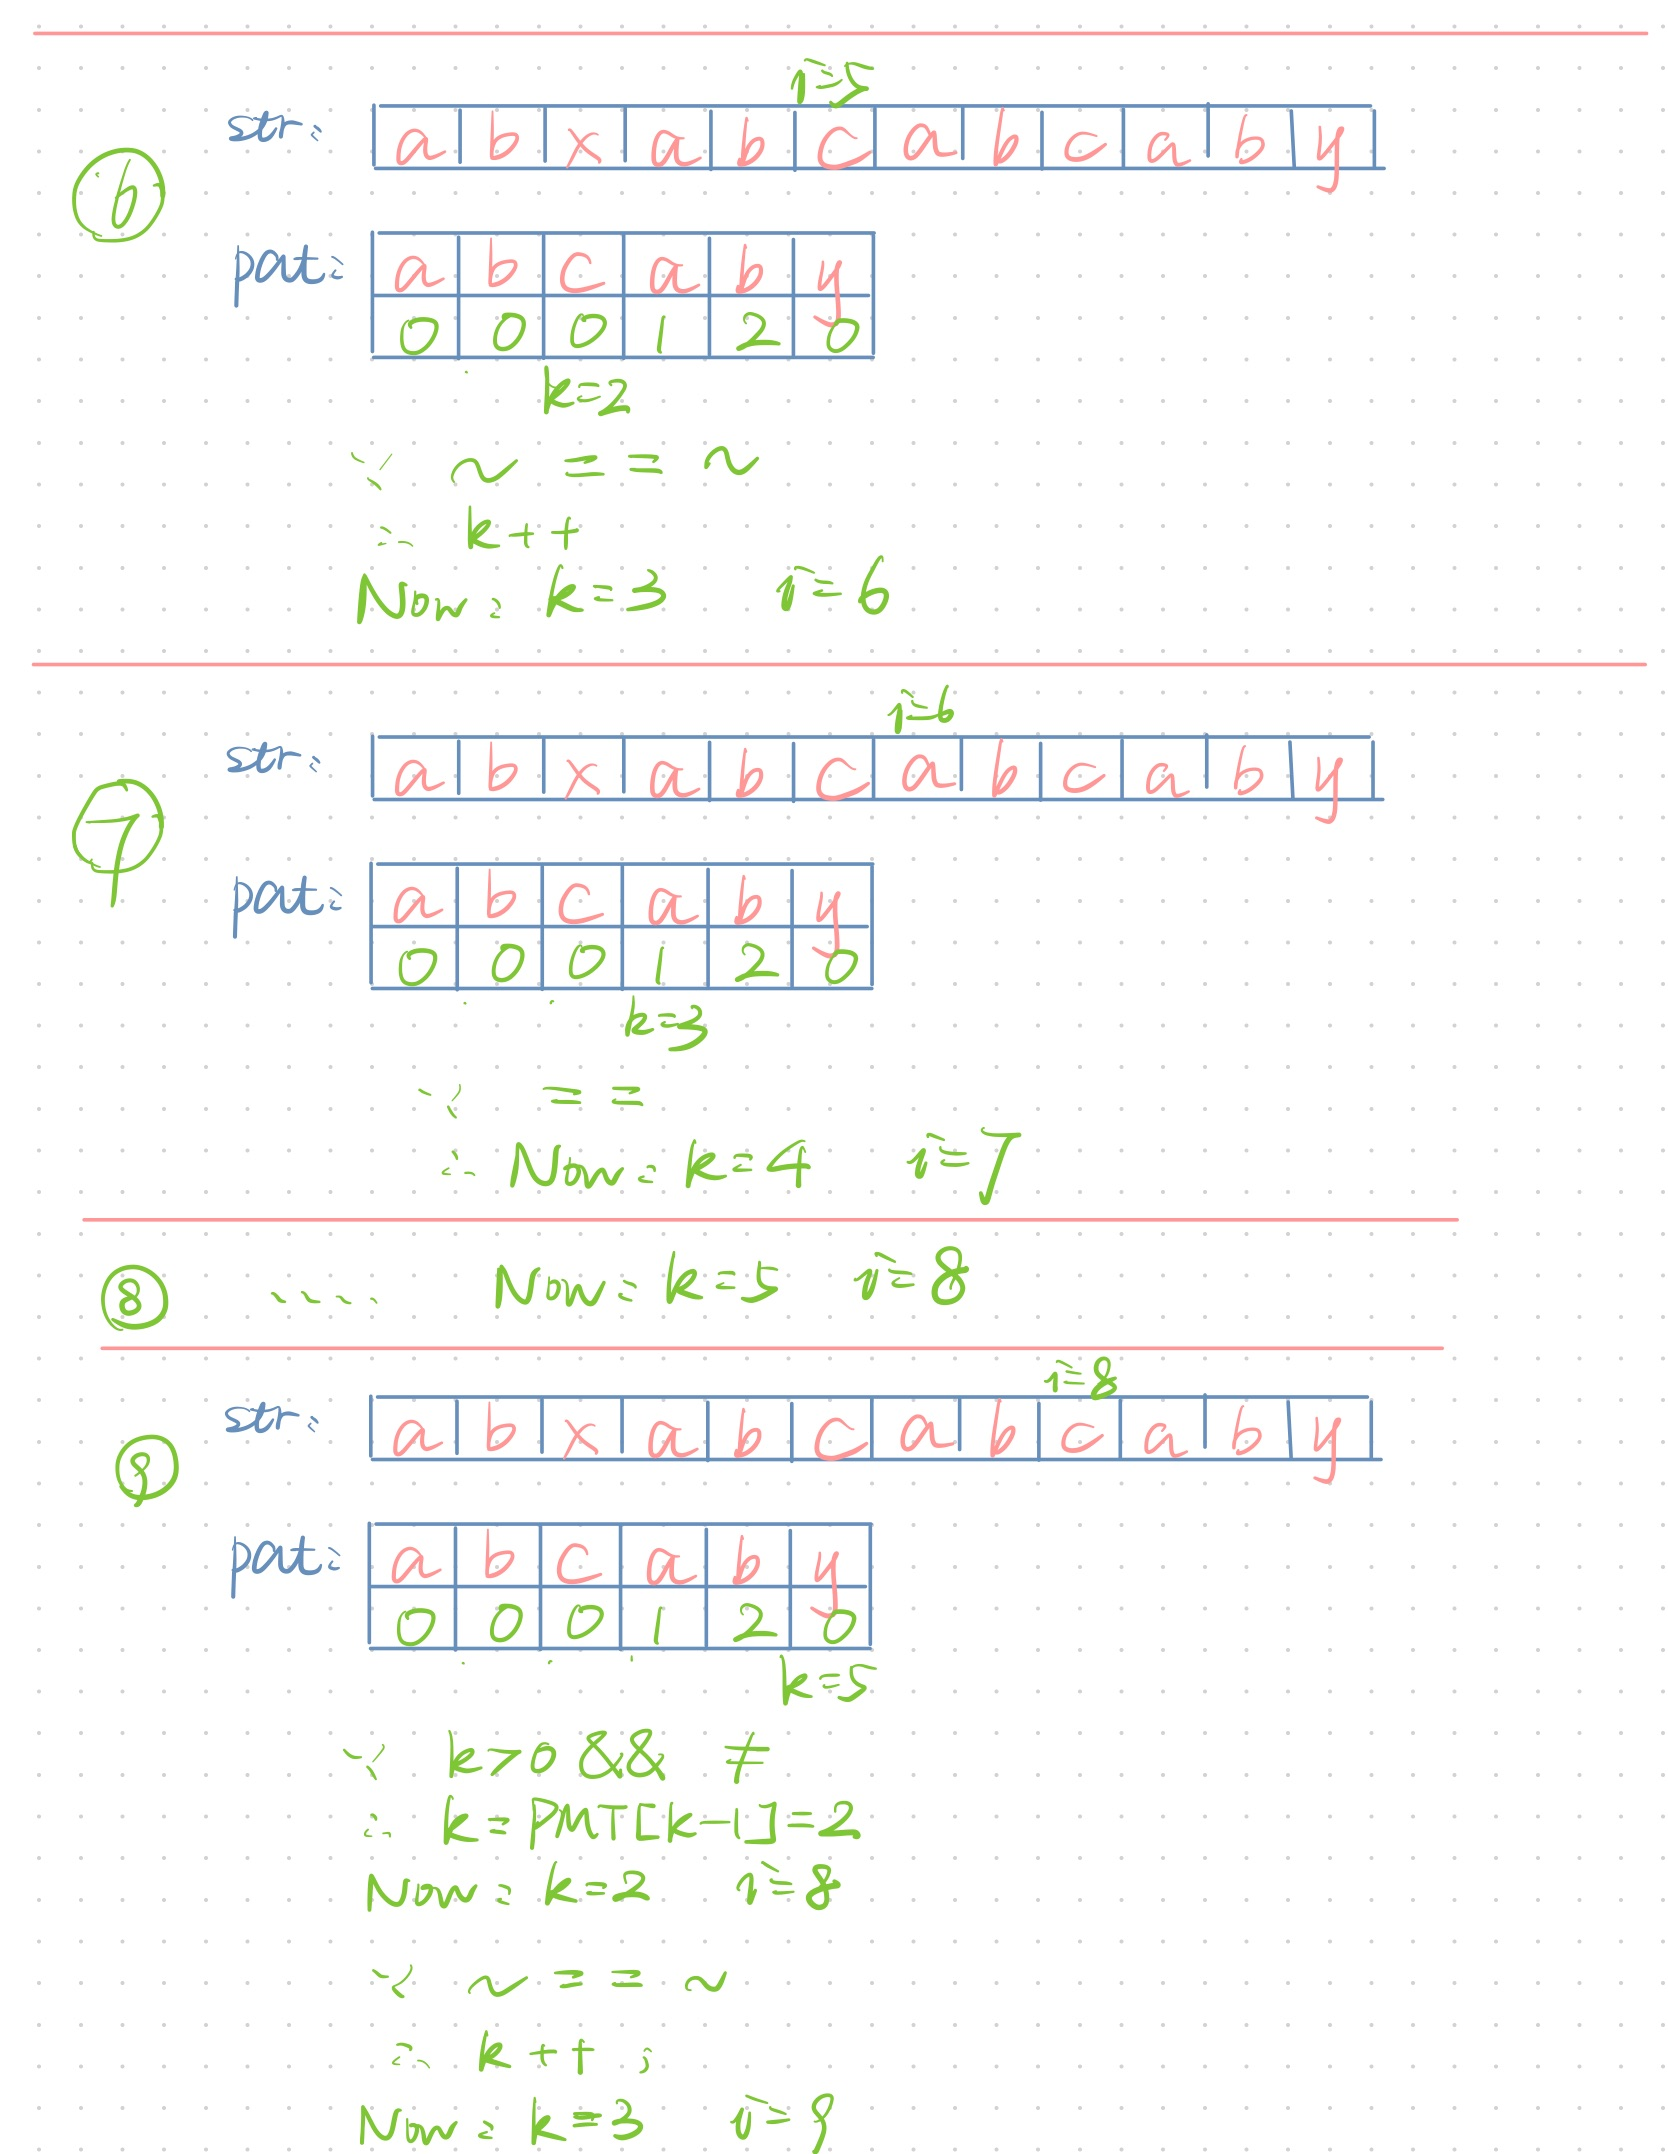 i=5
⑥ str: a b x a b c a b c a b y
pat: a b c a b y
0 0 0 1 2 0
k=2
∵ ~ == ~
∴ k++
Now: k=3 i=6
i=6
⑦ str: a b x a b c a b c a b y
pat: a b c a b y
0 0 0 1 2 0
k=3
∵ ==
∴ Now: k=4 i=7
⑧ .... Now: k=5 i=8
i=8
⑨ str: a b x a b c a b c a b y
pat: a b c a b y
0 0 0 1 2 0
k=5
∵ k>0 && ≠
∴ k=PMT[k-1]=2
Now: k=2 i=8
∵ ~ == ~
∴ k++;
Now: k=3 i=9